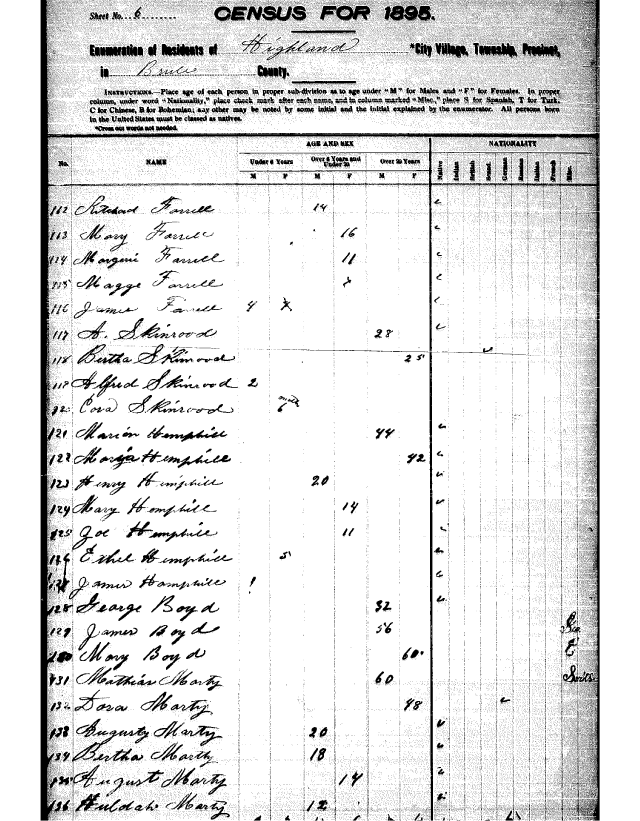 Sheet No. 6
CENSUS FOR 1895.
Enumeration of Residents of Highland *City Village, Township, Precinct,
in Brule County.
INSTRUCTIONS.—Place age of each person in proper sub-division as to age under "M" for Males and "F" for Females. In proper
column, under word "Nationality," place check mark after each name, and in column marked "Misc," place S for Spanish, T for Turk,
C for Chinese, B for Bohemian; any other may be noted by some initial and the initial explained by the enumerator. All persons born
in the United States must be classed as natives.
*Cross out words not needed.
AGE AND SEX NATIONALITY
No. NAME Under 6 Years Over 6 Years and Under 20 Over 20 Years Native Indian British Scand. German Russian Italian French Misc.
M F M F M F
112 Richard Farrell 14
113 Mary Farrell 16
114 Farrell 11
115 Magge Farrell
116 James Farrell 4
117 A. Skinrood 28
118 Bertha Skinrood 25
119 Alfred Skinrood 2
120 Cora Skinrood 6
121 Marion Hemphill 44
122 Hemphill 42
123 Henry Hemphill 20
124 Mary Hemphill 14
125 Zoe Hemphill 11
126 Ethel Hemphill 5
127 James Hamphill 1
128 George Boyd 32
129 James Boyd 56
130 Mary Boyd 60 E
131 Mathias Marty 60
132 Dora Marty 48
133 Augusty Marty 20
134 Bertha Marty 18
135 August Marty 14
136 Huldah Marty 12